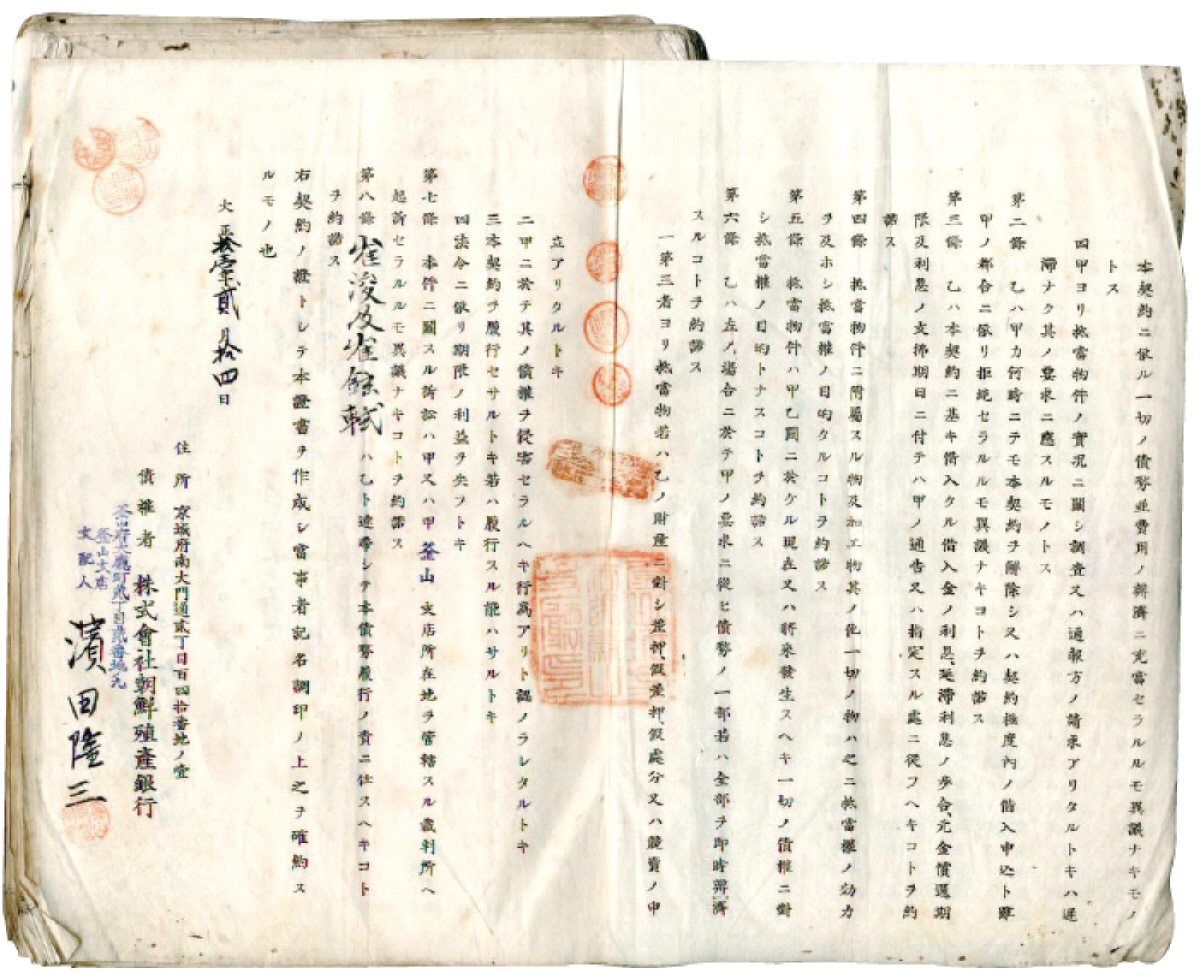 本契約ニ依ル一切ノ債務並費用ノ辨濟ニ充當セラルルモ異議ナキモノ
トス
四甲ヨリ抵當物件ノ實況ニ關シ調査又ハ通報方ノ請求アリタルトキハ遲
滯ナク其ノ要求ニ應スルモノトス
第二條 乙ハ甲カ何時ニテモ本契約ヲ解除シ又ハ契約極度內ノ借入申込ト雖
甲ノ都合ニ依リ拒絕セラルルモ異議ナキコトヲ約諾ス
第三條 乙ハ本契約ニ基キ借入タル借入金ノ利息、延滯利息ノ步合、元金償還期
限及利息ノ支拂期日ニ付テハ甲ノ通告又ハ指定スル處ニ從フヘキコトヲ約
諾ス
第四條 抵當物件ニ附屬スル物及加工物其ノ他一切ノ物ハ之ニ抵當權ノ効力
ヲ及ホシ抵當權ノ目的タルコトヲ約諾ス
第五條 抵當物件ハ甲乙間ニ於ケル現在又ハ將來發生スヘキ一切ノ債權ニ對
シ抵當權ノ目的トナスコトヲ約諾ス
第六條 乙ハ左ノ場合ニ於テ甲ノ要求ニ從ヒ債務ノ一部若ハ全部ヲ卽時辨濟
スルコトヲ約諾ス
一第三者ヨリ抵當物若ハ乙ノ財產ニ對シ差押、假差押、假處分又ハ競賣ノ申
立アリタルトキ
二甲ニ於テ其ノ債權ヲ侵害セラルヘキ行爲アリト認メラレタルトキ
三本契約ヲ履行セサルトキ若ハ履行スル能ハサルトキ
四法令ニ依リ期限ノ利益ヲ失フトキ
第七條 本件ニ關スル訴訟ハ甲又ハ甲 釜山 支店所在地ヲ管轄スル裁判所ヘ
起訴セラルルモ異議ナキコトヲ約諾ス
第八條 崔浚及崔銖軾 ハ乙ト連帶シテ本債務履行ノ責ニ任スヘキコト
ヲ約諾ス
右契約ノ證トシテ本證書ヲ作成シ當事者記名調印ノ上之ヲ確約ス
ルモノ也
大正拾壹年貳月拾四日
住所 京城府南大門通貳丁目百四拾番地ノ壹
債權者 株式會社朝鮮殖產銀行
釜山府大廳町貳丁目貳番地ノ
釜山支店
支配人 濱田隆三